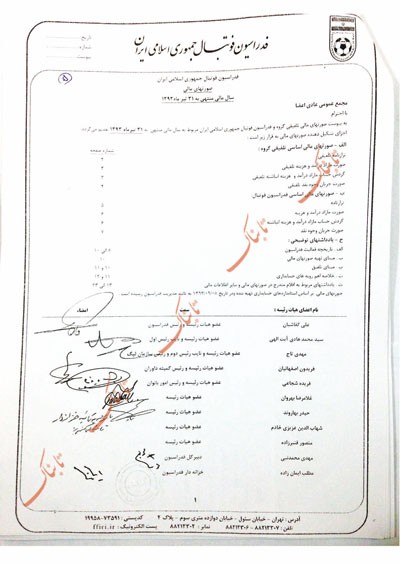 فدراسیون فوتبال جمهوری اسلامی ایران
تاریخ
شماره
پیوست
۵
فدراسیون فوتبال جمهوری اسلامی ایران
صورتهای مالی
سال مالی منتهی به ۳۱ تیر ماه ۱۳۹۳
مجمع عمومی عادی اعضا
با احترام
به پیوست صورتهای مالی تلفیقی گروه و فدراسیون فوتبال جمهوری اسلامی ایران مربوط به سال مالی منتهی به ۳۱ تیر ماه ۱۳۹۳ تقدیم می گردد
اجزای تشکیل دهنده صورتهای مالی به قرار زیر است:
شماره صفحه
الف - صورتهای مالی اساسی تلفیقی گروه:
ترازنامه تلفیقی
صورت مازاد درآمد و هزینه تلفیقی
گردش حساب مازاد درآمد و هزینه انباشته تلفیقی
صورت جریان وجوه نقد تلفیقی
ب - صورتهای مالی اساسی فدراسیون فوتبال:
ترازنامه
صورت مازاد درآمد و هزینه
گردش حساب مازاد درآمد و هزینه انباشته
صورت جریان وجوه نقد
ج - یادداشتهای توضیحی:
الف- تاریخچه فعالیت فدراسیون
ب- مبنای تهیه صورتهای مالی
پ- مبنای تلفیق
ت- خلاصه اهم رویه های حسابداری
ث- یادداشتهای مربوط به اقلام مندرج در صورتهای مالی و سایر اطلاعات مالی
صورتهای مالی بر اساس استانداردهای حسابداری تهیه شده و در تاریخ به تائید مدیریت فدراسیون رسیده است.
نام اعضای هیات رئیسه: سمت امضاء
علی کفاشیان عضو هیات رئیسه و رئیس فدراسیون
سید محمد هادی آیت الهی عضو هیات رئیسه و نایب رئیس اول
مهدی تاج عضو هیات رئیسه و نایب رئیس دوم و رئیس سازمان لیگ
فریدون اصفهانیان عضو هیات رئیسه و رئیس کمیته داوران
فریده شجاعی عضو هیات رئیسه و رئیس امور بانوان
غلامرضا بهروان عضو هیات رئیسه
حیدر بهاروند عضو هیات رئیسه
شهاب الدین عزیزی خادم عضو هیات رئیسه
منصور قنبرزاده عضو هیات رئیسه
مهدی محمدنبی دبیر کل فدراسیون
مطلب ایمان زاده خزانه دار فدراسیون
تابناک
تابناک
تابناک
تابناک
۱
آدرس: تهران - خیابان سئول - خیابان دوازده متری سوم - پلاک ۴ کدپستی: ۷۳۵۹۱-۱۹۹۵۸
تلفن: ۷-۸۸۲۱۳۳۰۶ نمابر: ۸۸۲۱۳۳۰۲ پست الکترونیک: ffiri.ir